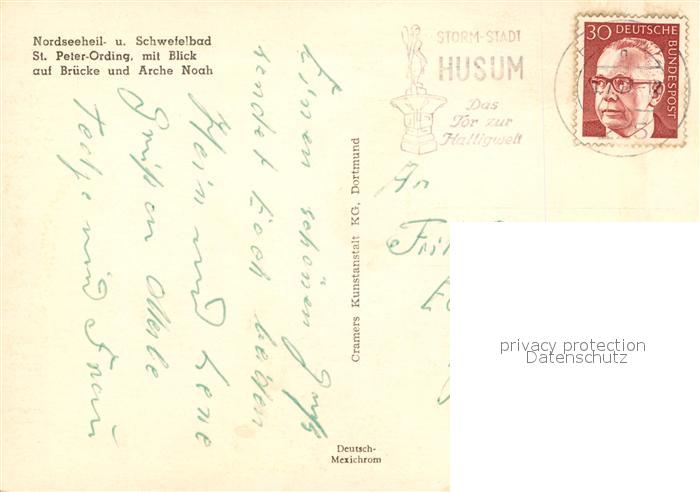 Nordseeheil- u. Schwefelbad
St. Peter-Ording, mit Blick
auf Brücke und Arche Noah
STORM-STADT
HUSUM
Das
Tor zur
Halligwelt
30 DEUTSCHE
BUNDESPOST
Einen schönen Gruß
sendet Euch beiden
Hein und Lene
Grüßen
und Frau
Cramers Kunstanstalt KG, Dortmund
An
privacy protection
Datenschutz
Deutsch-
Mexichrom